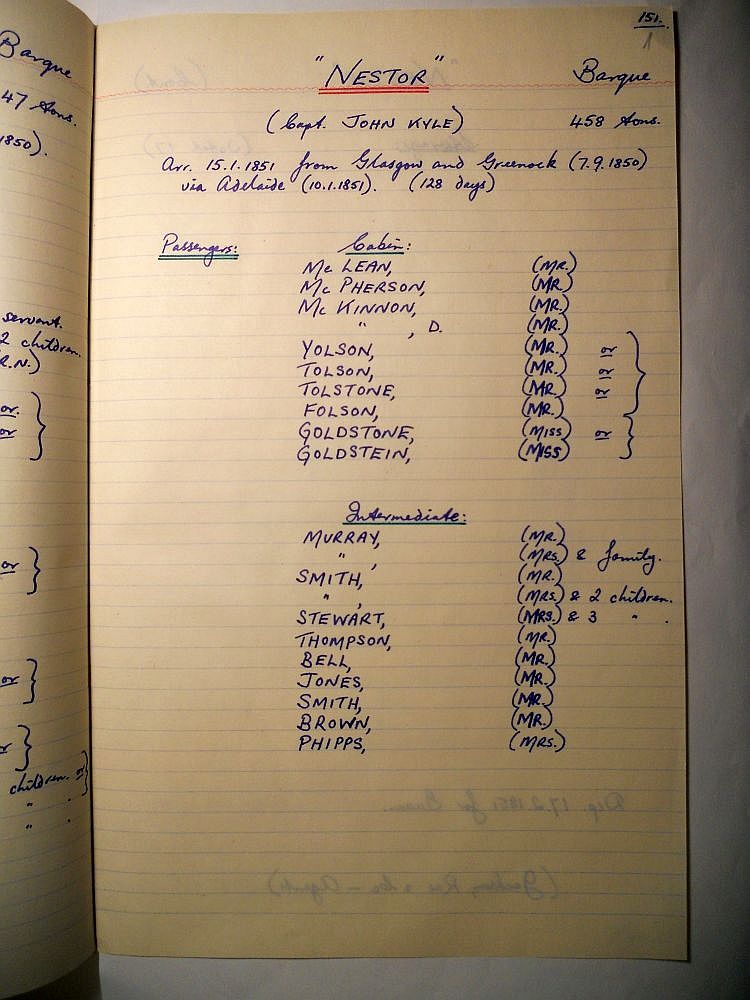 Barque
47 tons.
1850).
servant.
2 children.
R.N.)
or.
or
or
or
or
children. or
"
"
151.
1
"NESTOR" Barque
(Capt. JOHN KYLE) 458 tons.
Arr. 15.1.1851 from Glasgow and Greenock (7.9.1850)
via Adelaide (10.1.1851). (128 days)
Passengers: Cabin:
Mc LEAN, (MR.)
Mc PHERSON, (MR.)
Mc KINNON, (MR.)
" , D. (MR.)
YOLSON, (MR.) or
TOLSON, (MR.) or
TOLSTONE, (MR.) or
FOLSON, (MR.)
GOLDSTONE, (MISS) or
GOLDSTEIN, (MISS)
Intermediate:
MURRAY, (MR.)
" , (MRS.) & family.
SMITH, (MR.)
" , (MRS.) & 2 children.
STEWART, (MRS.) & 3 " .
THOMPSON, (MR.)
BELL, (MR.)
JONES, (MR.)
SMITH, (MR.)
BROWN, (MR.)
PHIPPS, (MRS.)